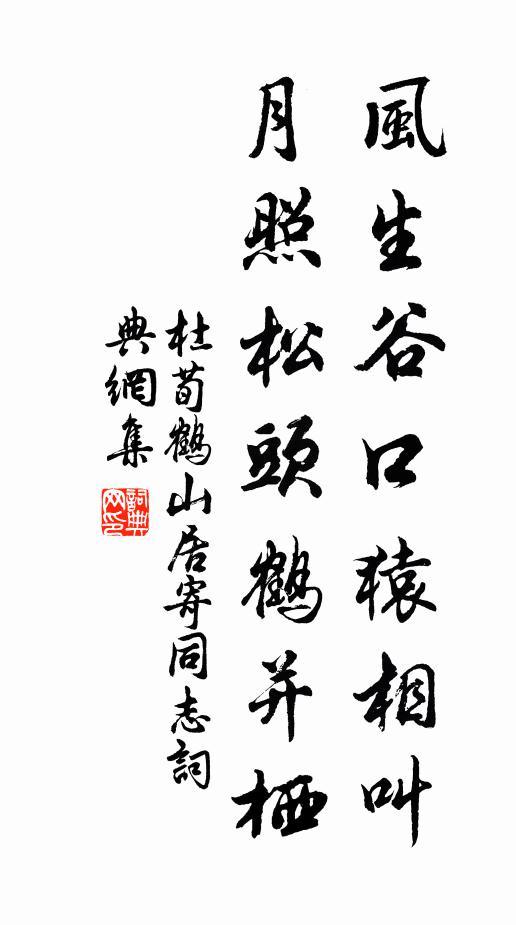 風生谷口猿相叫
月照松頭鶴并栖
杜荀鶴山居寄同志詞
典網集
詞典網印